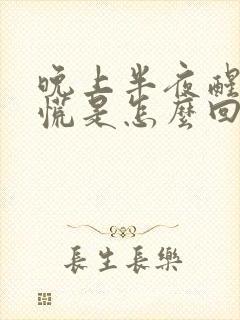 晚上半夜醒
慌是怎麼回
長生長樂